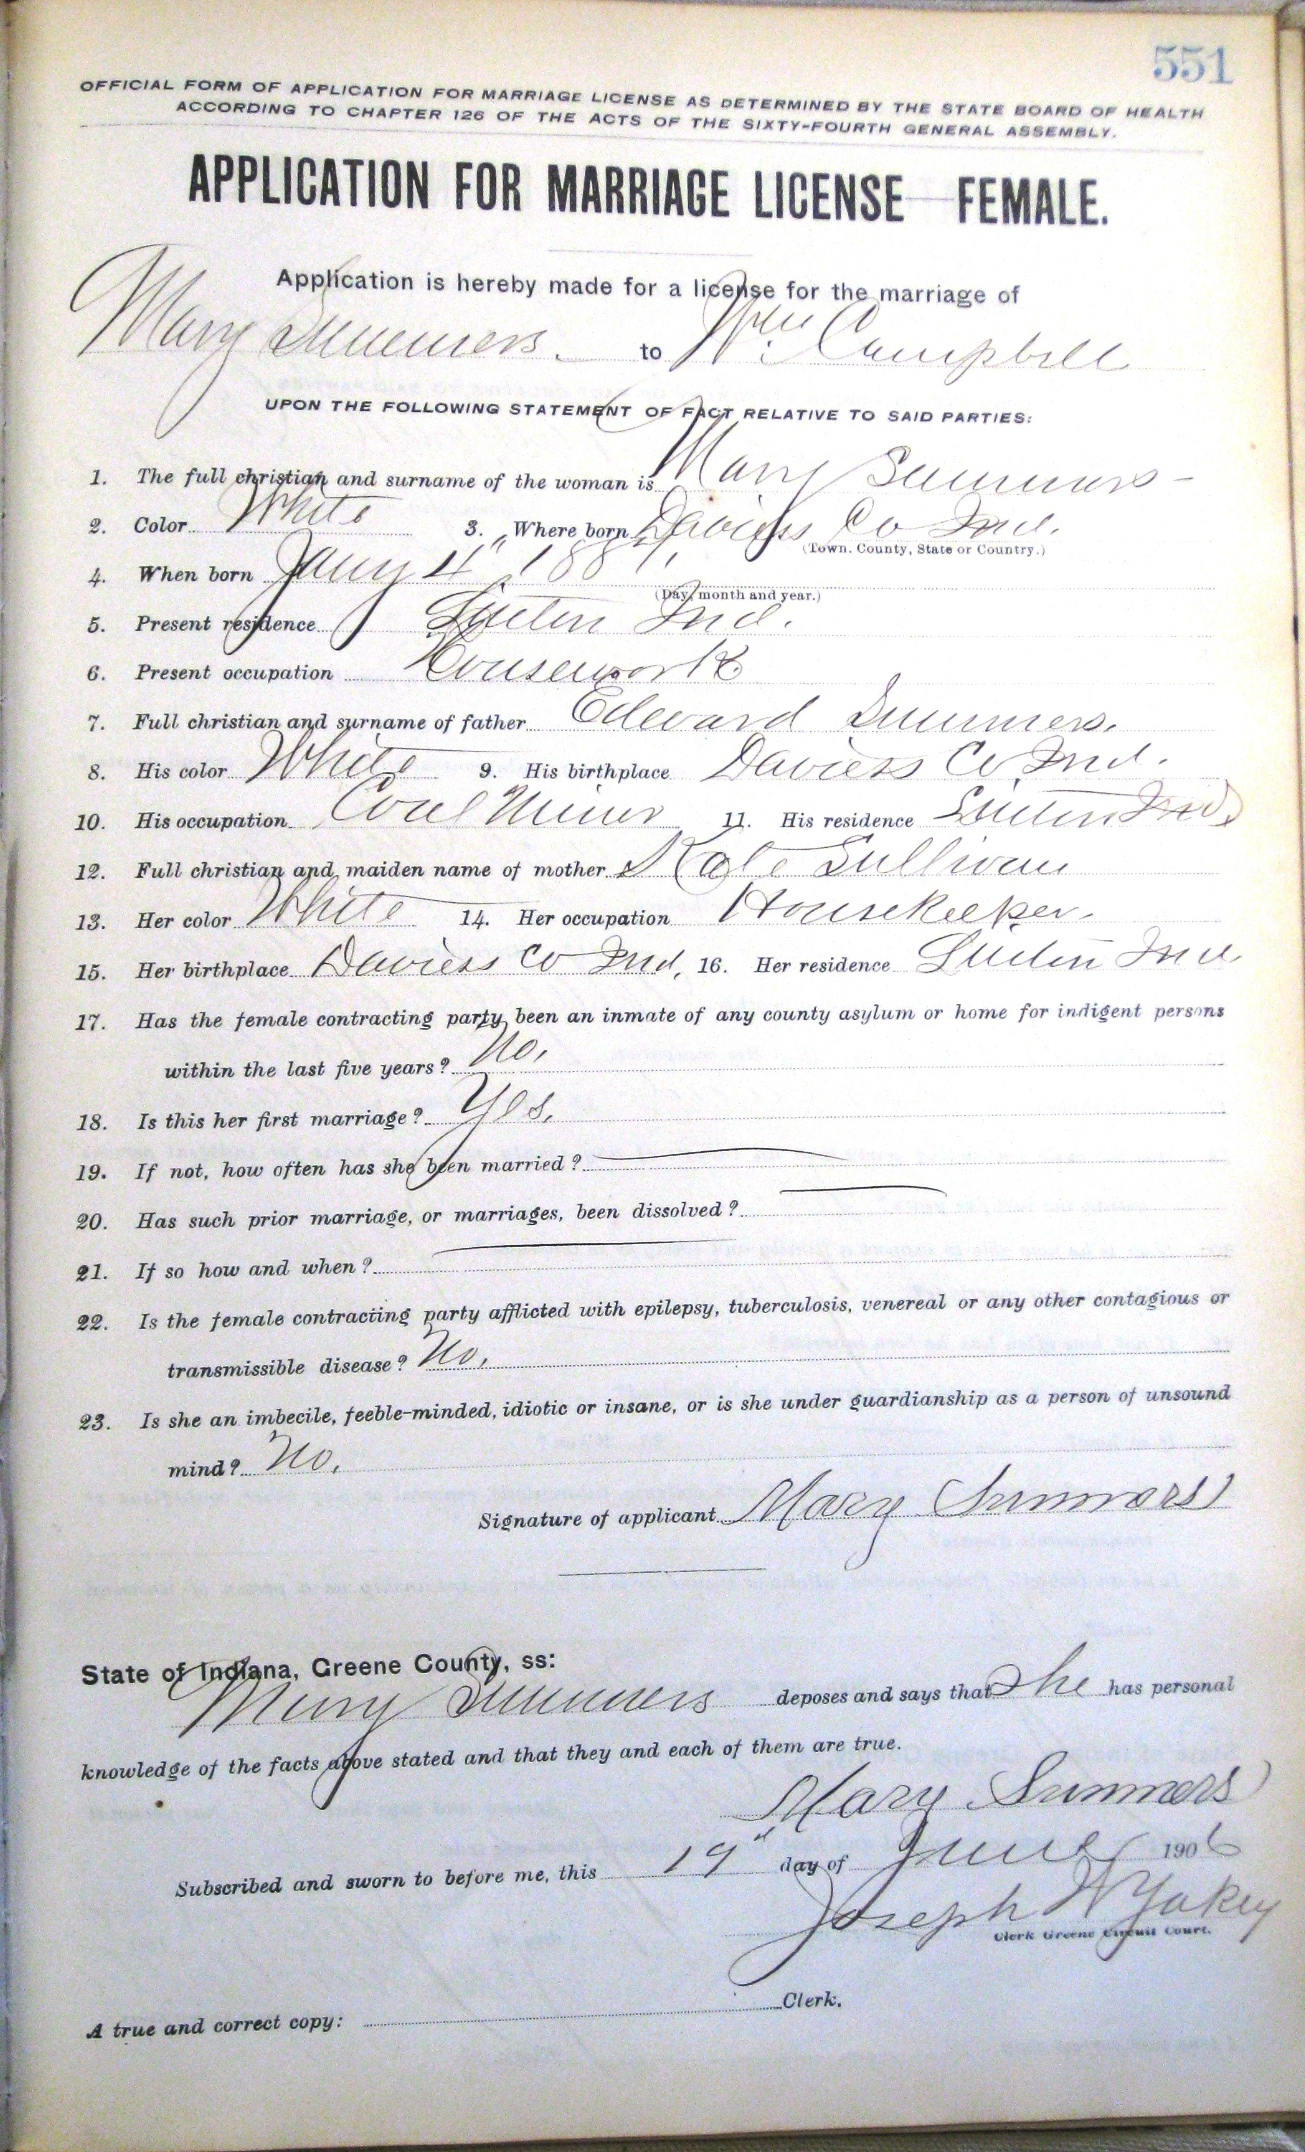 551
OFFICIAL FORM OF APPLICATION FOR MARRIAGE LICENSE AS DETERMINED BY THE STATE BOARD OF HEALTH
ACCORDING TO CHAPTER 126 OF THE ACTS OF THE SIXTY-FOURTH GENERAL ASSEMBLY.
APPLICATION FOR MARRIAGE LICENSE FEMALE.
Application is hereby made for a license for the marriage of
Mary Summers to Wm Campbell
UPON THE FOLLOWING STATEMENT OF FACT RELATIVE TO SAID PARTIES:
1. The full christian and surname of the woman is Mary Summers
2. Color White 3. Where born Daviess Co Ind.
(Town, County, State or Country.)
4. When born 4"
(Day, month and year.)
5. Present residence Linton Ind.
6. Present occupation Housework
7. Full christian and surname of father Edward Summers.
8. His color White 9. His birthplace Daviess Co Ind.
10. His occupation Coal Miner 11. His residence Linton Ind.
12. Full christian and maiden name of mother Kate Sullivan
13. Her color White 14. Her occupation Housekeeper.
15. Her birthplace Daviess Co Ind, 16. Her residence Linton Ind.
17. Has the female contracting party been an inmate of any county asylum or home for indigent persons
within the last five years? No.
18. Is this her first marriage? Yes.
19. If not, how often has she been married?
20. Has such prior marriage, or marriages, been dissolved?
21. If so how and when?
22. Is the female contracting party afflicted with epilepsy, tuberculosis, venereal or any other contagious or
transmissible disease? No.
23. Is she an imbecile, feeble-minded, idiotic or insane, or is she under guardianship as a person of unsound
mind? No.
Signature of applicant Mary Summers
State of Indiana, Greene County, ss:
Mary Summers deposes and says that She has personal
knowledge of the facts above stated and that they and each of them are true.
Mary Summers
Subscribed and sworn to before me, this 19" day of June 1906
Joseph W Yakey
Clerk Greene Circuit Court.
A true and correct copy: Clerk.